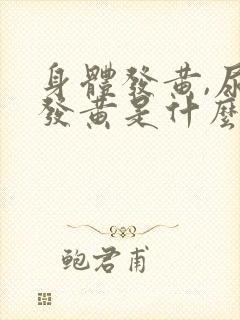 身體發黃,尿
發黃是什麼
鮑君甫